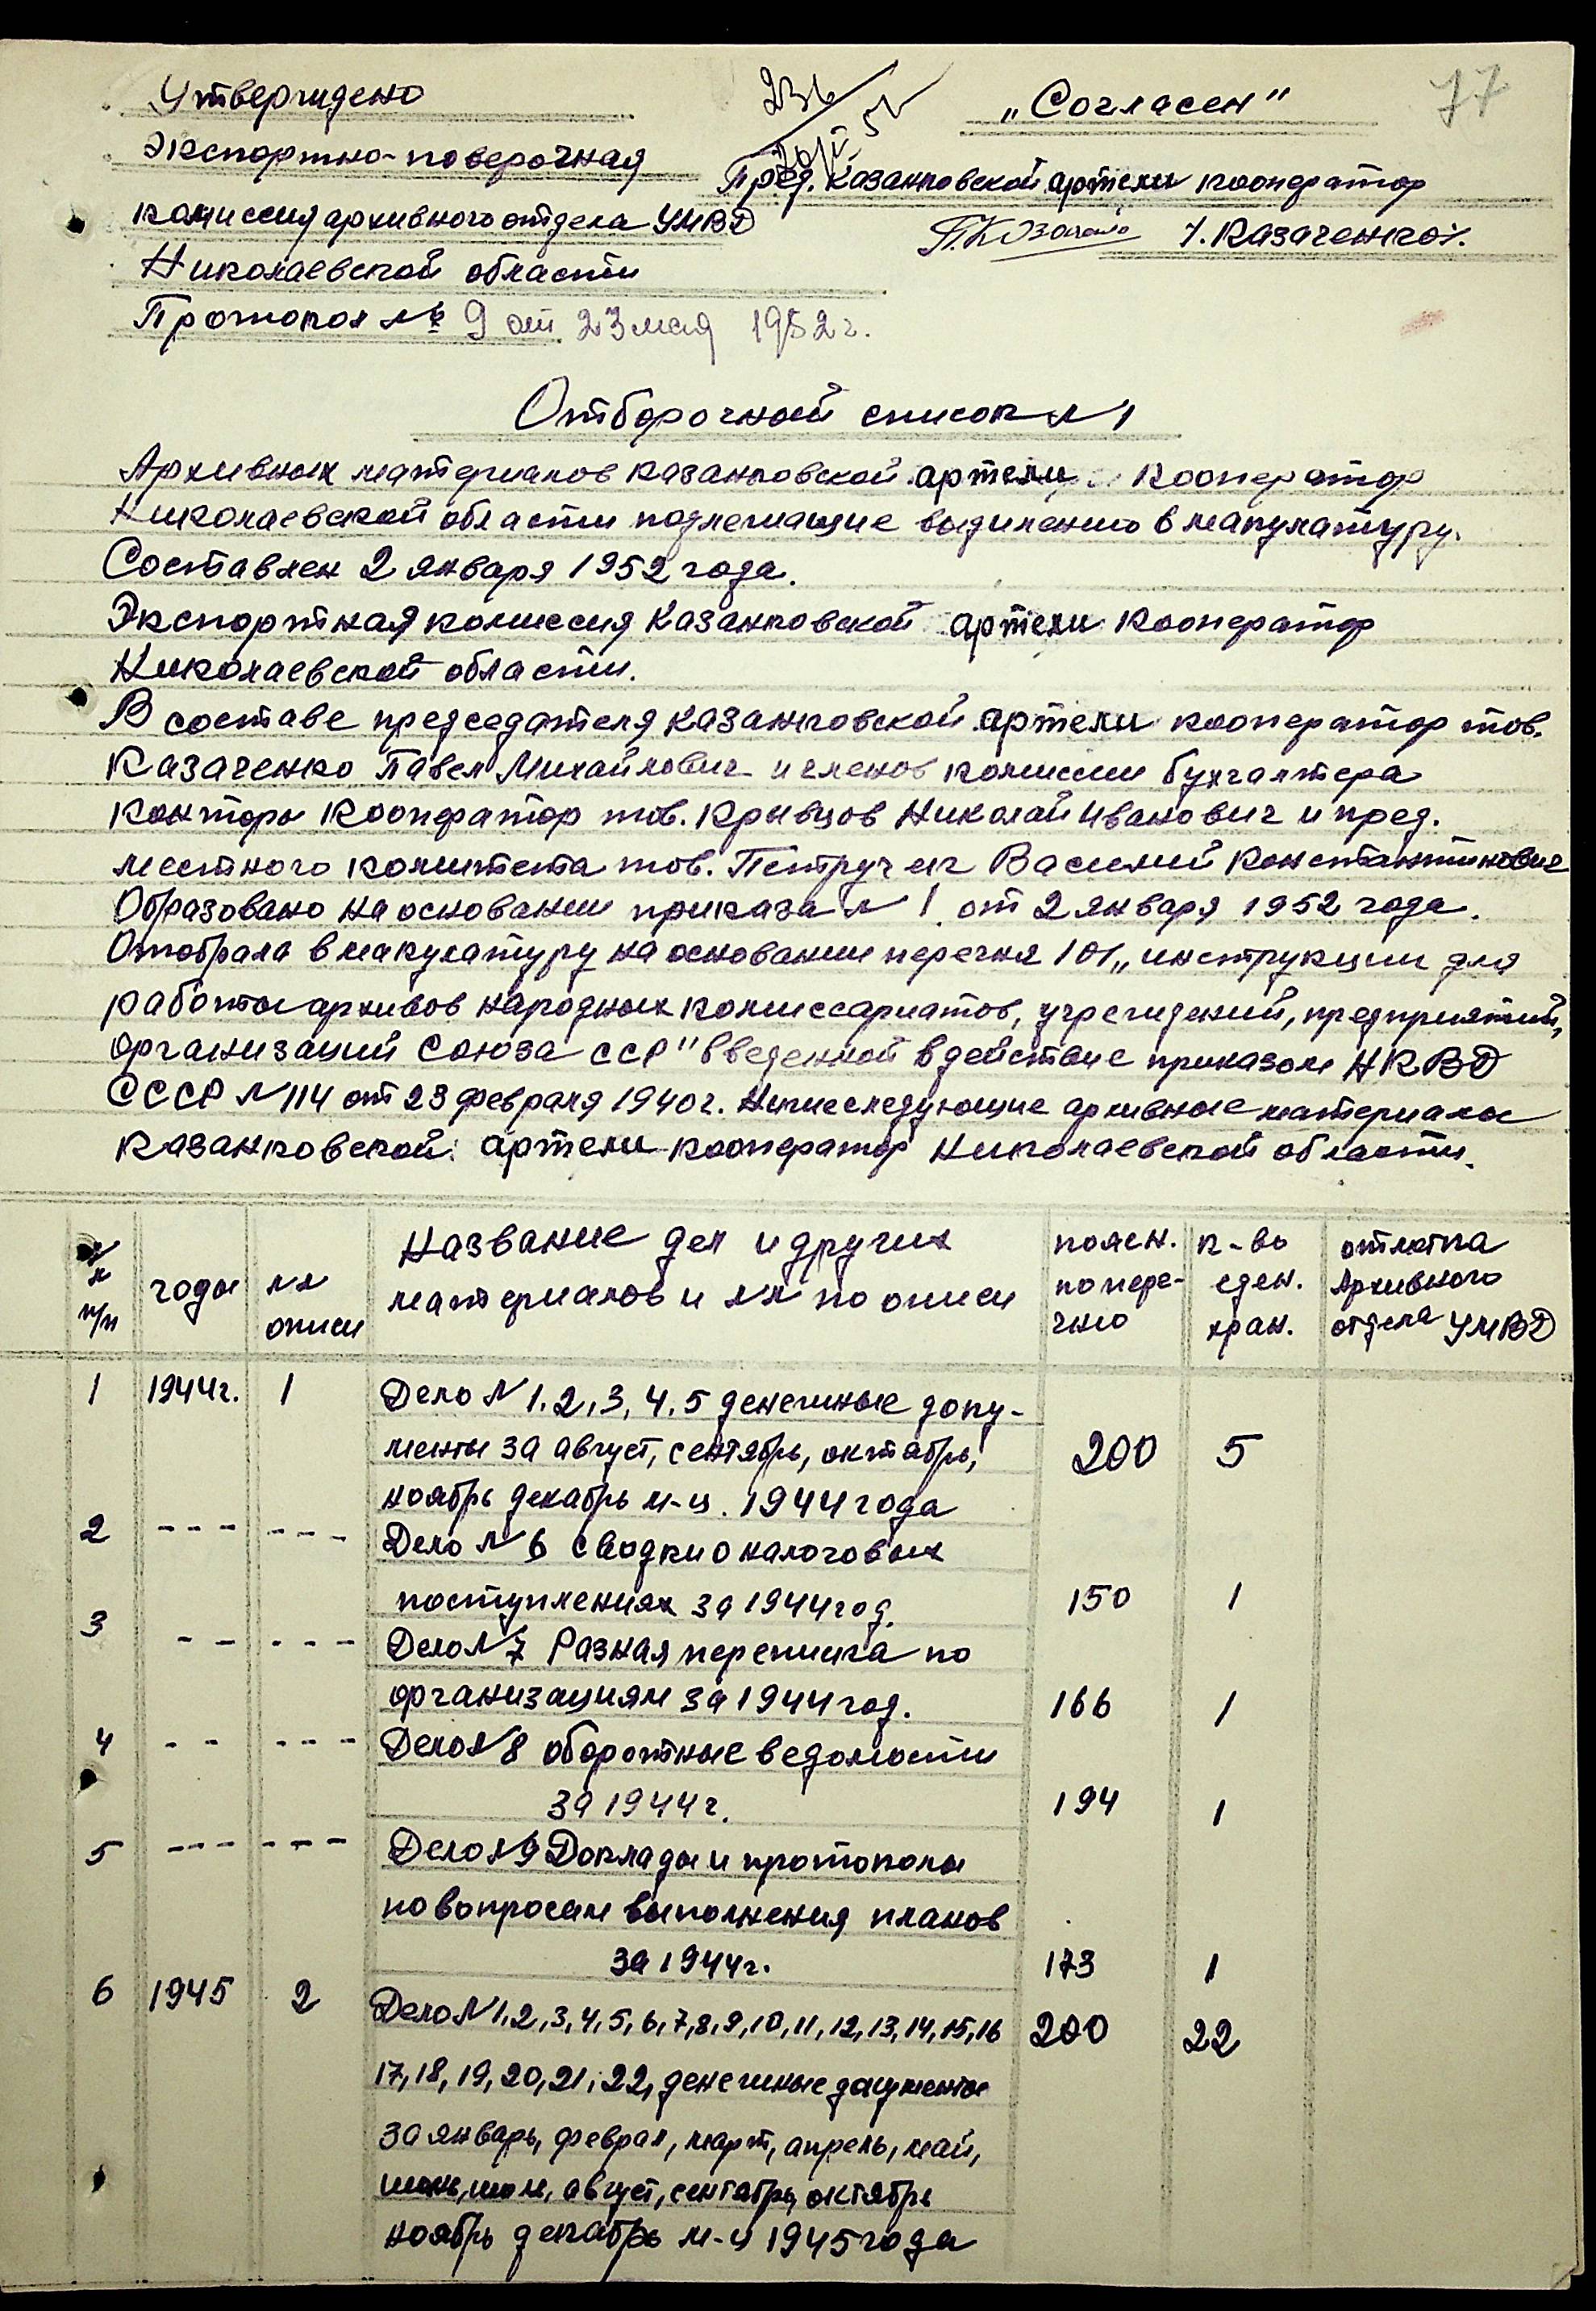 Утверждено
Экспортно-поверочная
комиссия архивного отдела УМВД
Николаевской области
Протокол № 9 от 23 мая 1952 г.
77
„Согласен"
Пред. Казанковской артели кооператор
/. Казаченко/.
Отборочный список N 1
Архивных материалов Казанковской артели Кооператор
Николаевской области подлежащие выделению в макулатуру.
Составлен 2 января 1952 года.
Экспортная комиссия Казанковской артели Кооператор
Николаевской области.
В составе председателя Казанковской артели кооператор тов.
Казаченко Павел Михайлович и членов комиссии бухгалтера
конторы Кооператор тов. Кривцов Николай Иванович и пред.
местного комитета тов. Василий Константинович
Образовано на основании приказа N 1 от 2 января 1952 года.
Отобрала в макулатуру на основании перечня 101 „инструкции для
работы архивов народных комиссариатов, учреждений, предприятий,
организаций Союза ССР" введенной в действие приказом НКВД
СССР N 114 от 23 февраля 1940 г. Нижеследующие архивные материалы
Казанковской артели кооператор Николаевской области.
NN п/п
годы
NN описи
Название дел и других
материалов и NN по описи
номен. по пере-чню
к-во еден. хран.
отметка Архивного отдела УМВД
1 1944г. 1 Дело N 1, 2, 3, 4, 5 денежные доку-
менты за август, сентябрь, октябрь, 200 5
ноябрь декабрь м-ц. 1944 года
2 --- --- Дело N 6 сводки о налоговых
поступлениях за 1944 год. 150 1
3 -- --- Дело N 7 Разная переписка по
организациям за 1944 год. 166 1
4 -- --- Дело N 8 оборотные ведомости
за 1944 г. 194 1
5 --- --- Дело N 9 Доклады и протоколы
по вопросам выполнения планов
за 1944 г. 173 1
6 1945 2 Дело N 1, 2, 3, 4, 5, 6, 7, 8, 9, 10, 11, 12, 13, 14, 15, 16 200 22
17, 18, 19, 20, 21, 22, денежные документы
за январь, феврал, март, апрель, май,
июнь, июль, август, сентябрь, октябрь
ноябрь декабрь м-ц 1945 года